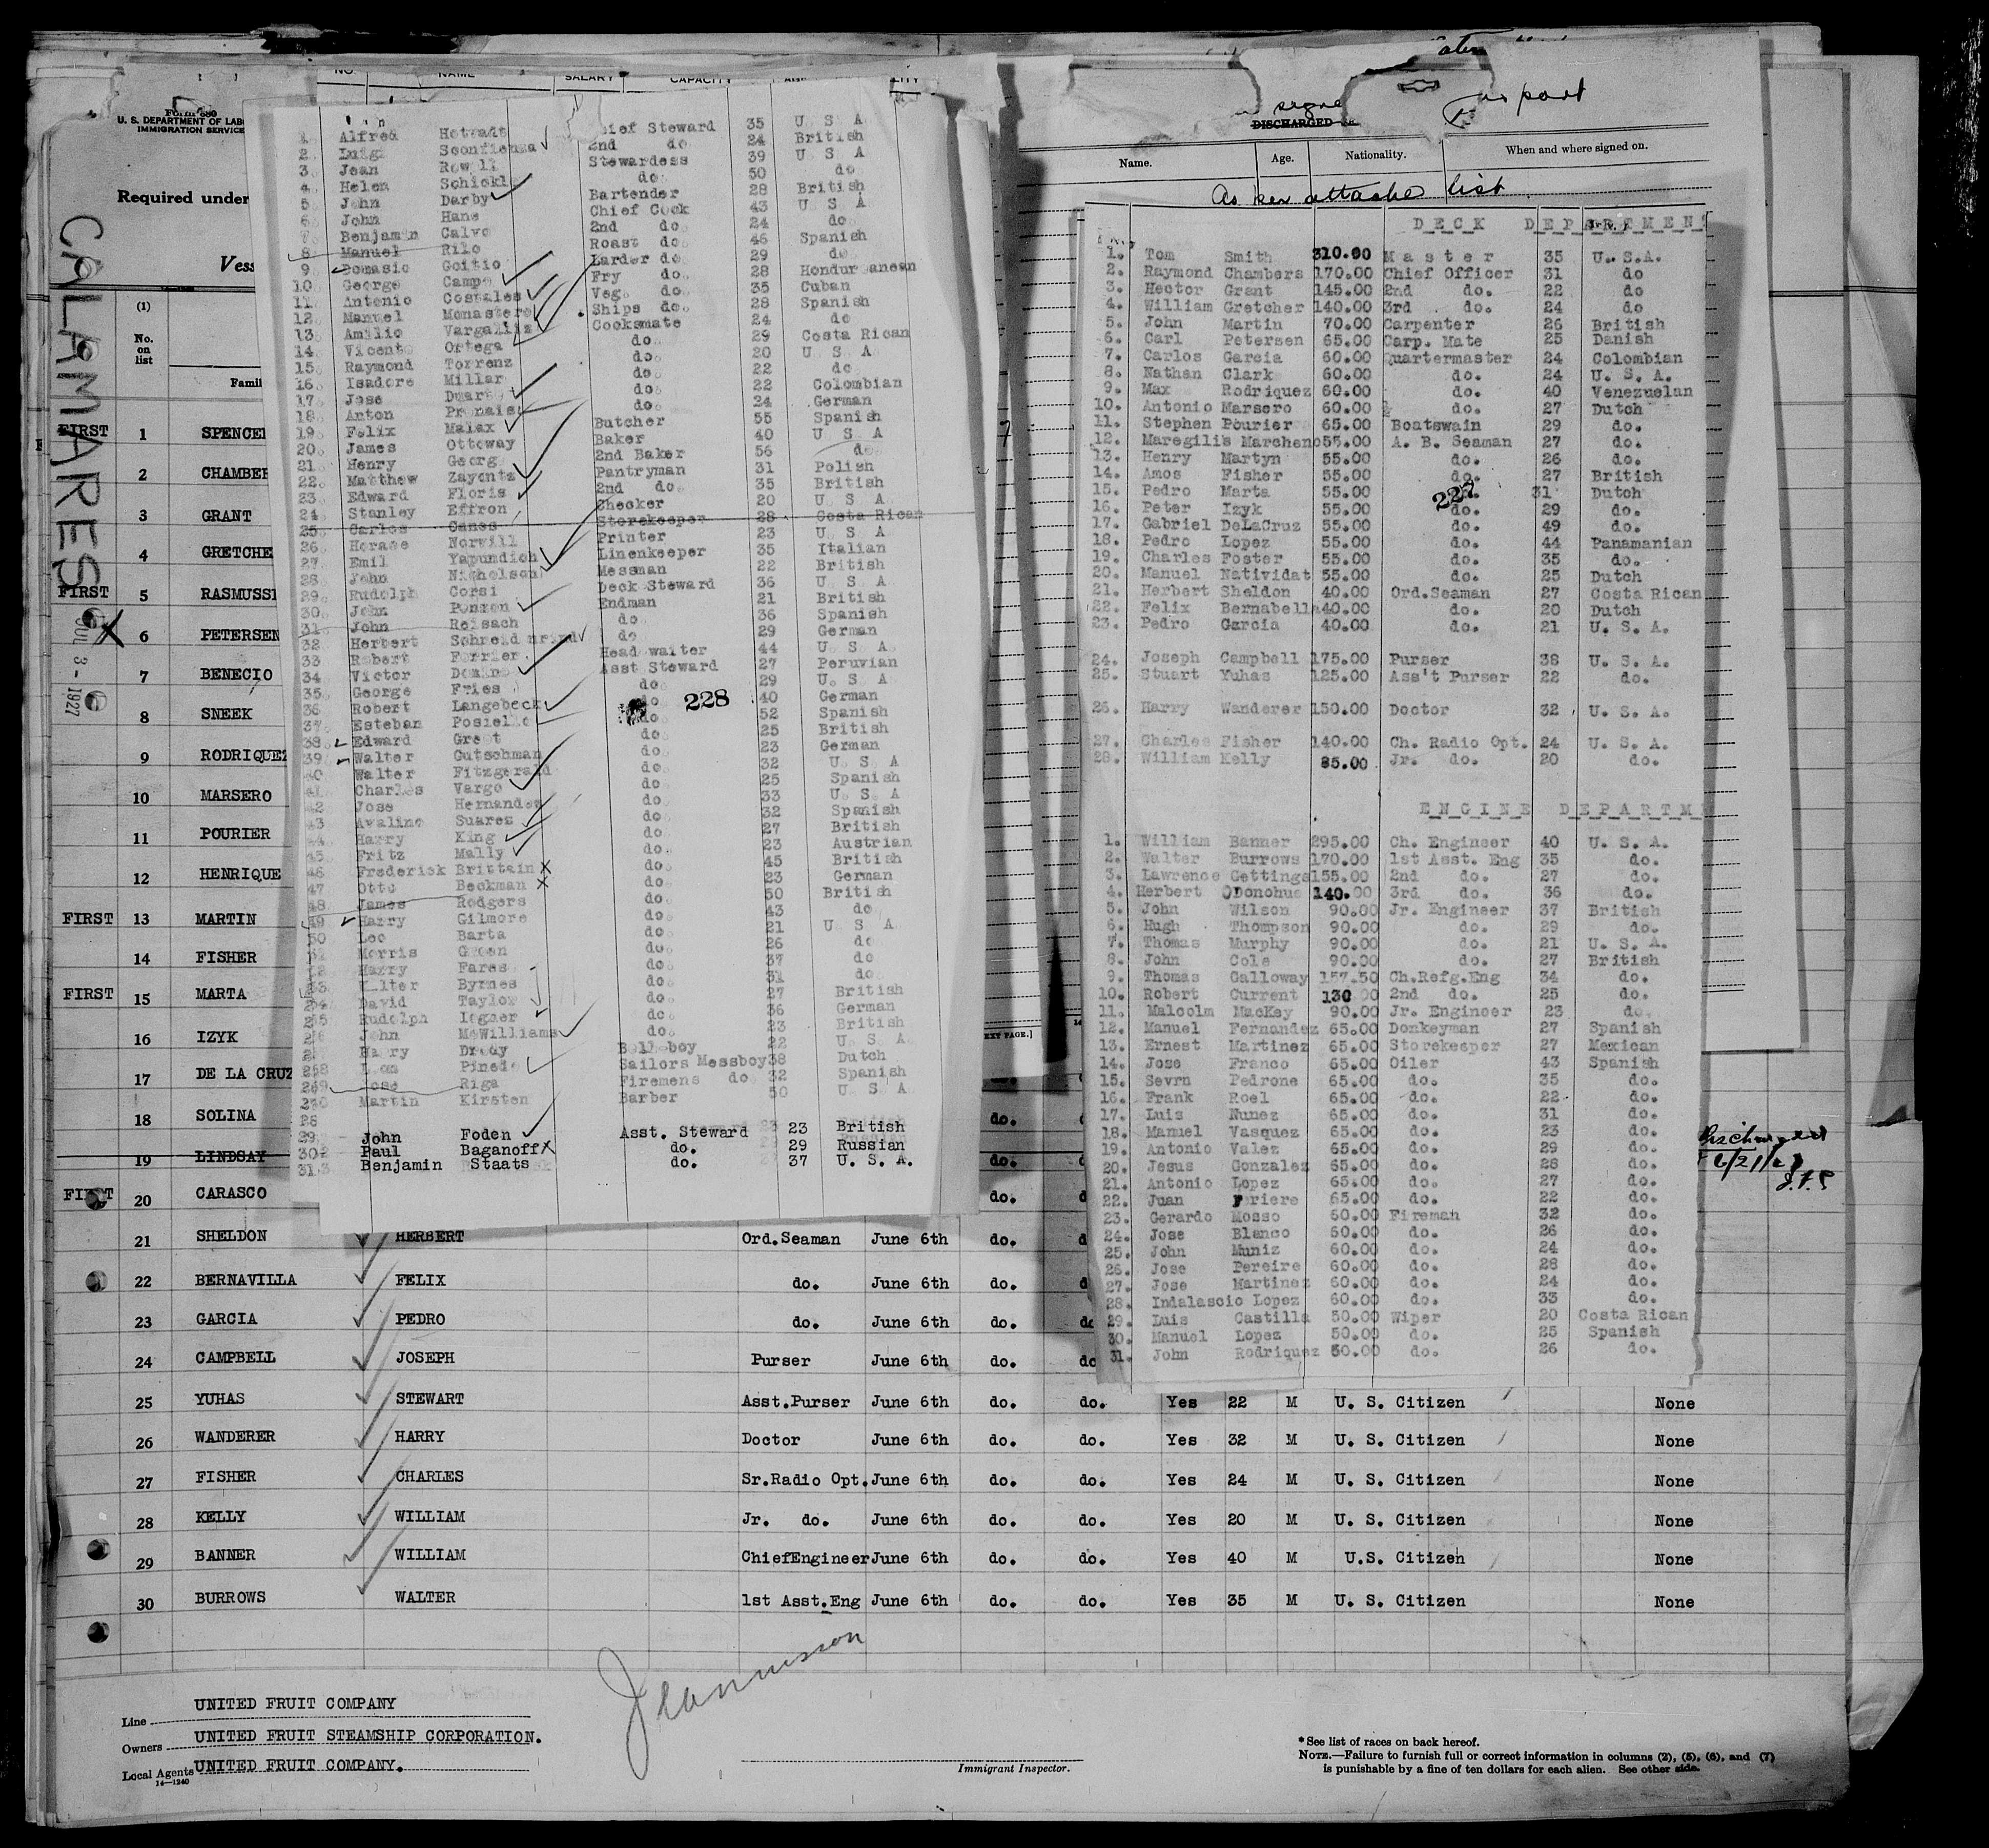 CALAMARES
JUL 3 - 1927
Form 680
U. S. DEPARTMENT OF LABOR
IMMIGRATION SERVICE
Required under
Vess
(1)
No.
on
list
Famil
FIRST 1 SPENCER
2 CHAMBER
3 GRANT
4 GRETCHE
FIRST 5 RASMUSSE
X 6 PETERSEN
7 BENECIO
8 SNEEK
9 RODRIQUEZ
10 MARSERO
11 POURIER
12 HENRIQUE
FIRST 13 MARTIN
14 FISHER
FIRST 15 MARTA
16 IZYK
17 DE LA CRUZ
18 SOLINA do.
19 LINDSAY do.
FIRST 20 CARASCO do.
21 SHELDON HERBERT Ord.Seaman June 6th do.
22 BERNAVILLA FELIX do. June 6th do.
23 GARCIA PEDRO do. June 6th do.
24 CAMPBELL JOSEPH Purser June 6th do. do
25 YUHAS STEWART Asst.Purser June 6th do. do. Yes 22 M U. S. Citizen None
26 WANDERER HARRY Doctor June 6th do. do. Yes 32 M U. S. Citizen None
27 FISHER CHARLES Sr.Radio Opt. June 6th do. do. Yes 24 M U. S. Citizen None
28 KELLY WILLIAM Jr. do. June 6th do. do. Yes 20 M U. S. Citizen None
29 BANNER WILLIAM ChiefEngineer June 6th do. do. Yes 40 M U.S. Citizen None
30 BURROWS WALTER 1st Asst.Eng June 6th do. do. Yes 35 M U. S. Citizen None
Line UNITED FRUIT COMPANY
Owners UNITED FRUIT STEAMSHIP CORPORATION.
Local Agents UNITED FRUIT COMPANY.
14—1240
Immigrant Inspector.
* See list of races on back hereof.
NOTE.—Failure to furnish full or correct information in columns (2), (5), (6), and (7)
is punishable by a fine of ten dollars for each alien. See other side.
NO. NAME SALARY CAPACITY
1. Alfred Chief Steward 35 U S A
2. Luigi Sconfienza 2nd do. 24 British
3. Jean Rowill Stewardess 39 U S A
4. Helen Schiekl do. 50 do
5. John Darby Bartender 28 British
6. John Hane Chief Cook 43 U S A
7. Benjamin Calvo 2nd do. 24 do
8. Manuel Rilo Roast do. 46 Spanish
9. Domasio Goitio Larder do 29 do
10. George Camp Fry do. 28 Honduranean
11. Antonio Costales Veg. do 35 Cuban
12. Manuel Monastero Ships do. 28 Spanish
13. Amilio Cooksmate 24 do
14. Vicent Ortega do. 29 Costa Rican
15. Raymond Torrenz do. 20 U S A
16. Isadore Millar do. 22 do
17. Jose Duart do. 22 Colombian
18. Anton do. 24 German
19. Felix Malax Butcher 55 Spanish
20. James Ottoway Baker 40 U S A
21. Henry Georg 2nd Baker 56 do
22. Matthew Zayentz Pantryman 31 Polish
23. Edward Floris 2nd do. 35 British
24. Stanley Effron Checker 20 U S A
25. Carlos Canes Storekeeper 28 Costa Rican
26. Horace Norwill Printer 23 U S A
27. Emil Yapundich Linenkeeper 35 Italian
28. John Nicholson Messman 22 British
29. Rudolph Corsi Deck Steward 36 U S A
30. John Ponzon Endman 21 British
31. John Reisach do 36 Spanish
32 Herbert do 29 German
33 Robert Ferrier Head waiter 44 U S A
34 Victor Asst Steward 27 Peruvian
35. George Fries do 29 U S A
36. Robert Langebeck do 40 German
37. Esteban do 52 Spanish
38. Edward Grest do. 25 British
39. Walter Gutschman do. 23 German
40 Walter Fitzgerald do. 32 U S A
41 Charles Vargo do. 25 Spanish
42 Jose Hernandez do. 33 U S A
43 Avalino Suarez do. 32 Spanish
44 Harry King do. 27 British
45 Fritz Mally do. 23 Austrian
46 Frederick Brittain X do. 45 British
47 Otto Beckman X do. 23 German
48 James Rodgers do. 50 British
49 Harry Gilmore do. 43 do
50 Leo Barta do. 21 U S A
Morris Green do. 26 do
Harry Fares do. 37 do
Walter Byrnes do. 31 do
David Taylor do. 27 British
Rudolph Legner do 36 German
John McWilliams do. 23 British
Harry Bellboy 22 U S A
Pined Sailors Messboy 38 Dutch
Jose Riga Firemens do 32 Spanish
Martin Kirsten Barber 50 U S A
John Foden Asst. Steward 23 British
Paul Baganoff X do. 29 Russian
Benjamin Staats do. 37 U. S. A.
228
DISCHARGED
Name. Age. Nationality. When and where signed on.
As per attache list
DECK DEPARTMENT
1. Tom Smith 310.00 Master 35 U. S.A.
2. Raymond Chambers 170.00 Chief Officer 31 do
3. Hector Grant 145.00 2nd do. 22 do
4. William Gretcher 140.00 3rd do. 24 do
5. John Martin 70.00 Carpenter 26 British
6. Carl Petersen 65.00 Carp. Mate 25 Danish
7. Carlos Garcia 60.00 Quartermaster 24 Colombian
8. Nathan Clark 60.00 do. 24 U. S. A.
9. Max Rodriquez 60.00 do. 40 Venezuelan
10. Antonio Marsero 60.00 do. 27 Dutch
11. Stephen Pourier 65.00 Boatswain 29 do.
12. Maregilis Marcheno 55.00 A. B. Seaman 27 do.
13. Henry Martyn 55.00 do. 26 do.
14. Amos Fisher 55.00 do. 27 British
15. Pedro Marta 55.00 227 31 Dutch
16. Peter Izyk 55.00 do. 29 do.
17. Gabriel DeLaCruz 55.00 do. 49 do.
18. Pedro Lopez 55.00 do. 44 Panamanian
19. Charles Foster 55.00 do. 35 do.
20. Manuel Natividat 55.00 do. 25 Dutch
21. Herbert Sheldon 40.00 Ord.Seaman 27 Costa Rican
22. Felix Bernabella 40.00 do. 20 Dutch
23. Pedro Garcia 40.00 do. 21 U. S. A.
24. Joseph Campbell 175.00 Purser 38 U. S. A.
25. Stuart Yuhas 125.00 Ass't Purser 22 do.
26. Harry Wanderer 150.00 Doctor 32 U. S. A.
27. Charles Fisher 140.00 Ch. Radio Opt. 24 U. S. A.
28. William Kelly 85.00 Jr. do. 20 do.
ENGINE DEPARTM
1. William Banner 295.00 Ch. Engineer 40 U. S. A.
2. Walter Burrows 170.00 1st Asst. Eng 35 do.
3. Lawrence Gettings 155.00 2nd do. 27 do.
4. Herbert ODonohue 140.00 3rd do. 36 do.
5. John Wilson 90.00 Jr. Engineer 37 British
6. Hugh Thompson 90.00 do. 29 do.
7. Thomas Murphy 90.00 do. 21 U. S. A.
8. John Cole 90.00 do. 27 British
9. Thomas Galloway 157.50 Ch.Refg.Eng 34 do.
10. Robert Current 130.00 2nd do. 25 do.
11. Malcolm MacKay 90.00 Jr. Engineer 23 do.
12. Manuel Fernandez 65.00 Donkeyman 27 Spanish
13. Ernest Martinez 65.00 Storekeeper 27 Mexican
14. Jose Franco 65.00 Oiler 43 Spanish
15. Sevrn Pedrone 65.00 do. 35 do.
16. Frank Roel 65.00 do. 22 do.
17. Luis Nunez 65.00 do. 31 do.
18. Manuel Vasquez 65.00 do. 23 do.
19. Antonio Valez 65.00 do. 29 do.
20. Jesus Gonzalez 65.00 do. 28 do.
21. Antonio Lopez 65.00 do. 27 do.
22. Juan Friere 65.00 do. 22 do.
23. Gerardo Mosso 60.00 Fireman 32 do.
24. Jose Blanco 60.00 do. 26 do.
25. John Muniz 60.00 do. 24 do.
26. Jose Pereire 60.00 do. 28 do.
27. Jose Martinez 60.00 do. 24 do.
28. Indalascio Lopez 60.00 do. 33 do.
29. Luis Castilla 50.00 Wiper 20 Costa Rican
30. Manuel Lopez 50.00 do. 25 Spanish
31. John Rodriquez 50.00 do. 26 do.
EXT PAGE.]
Discharged
6/21/27